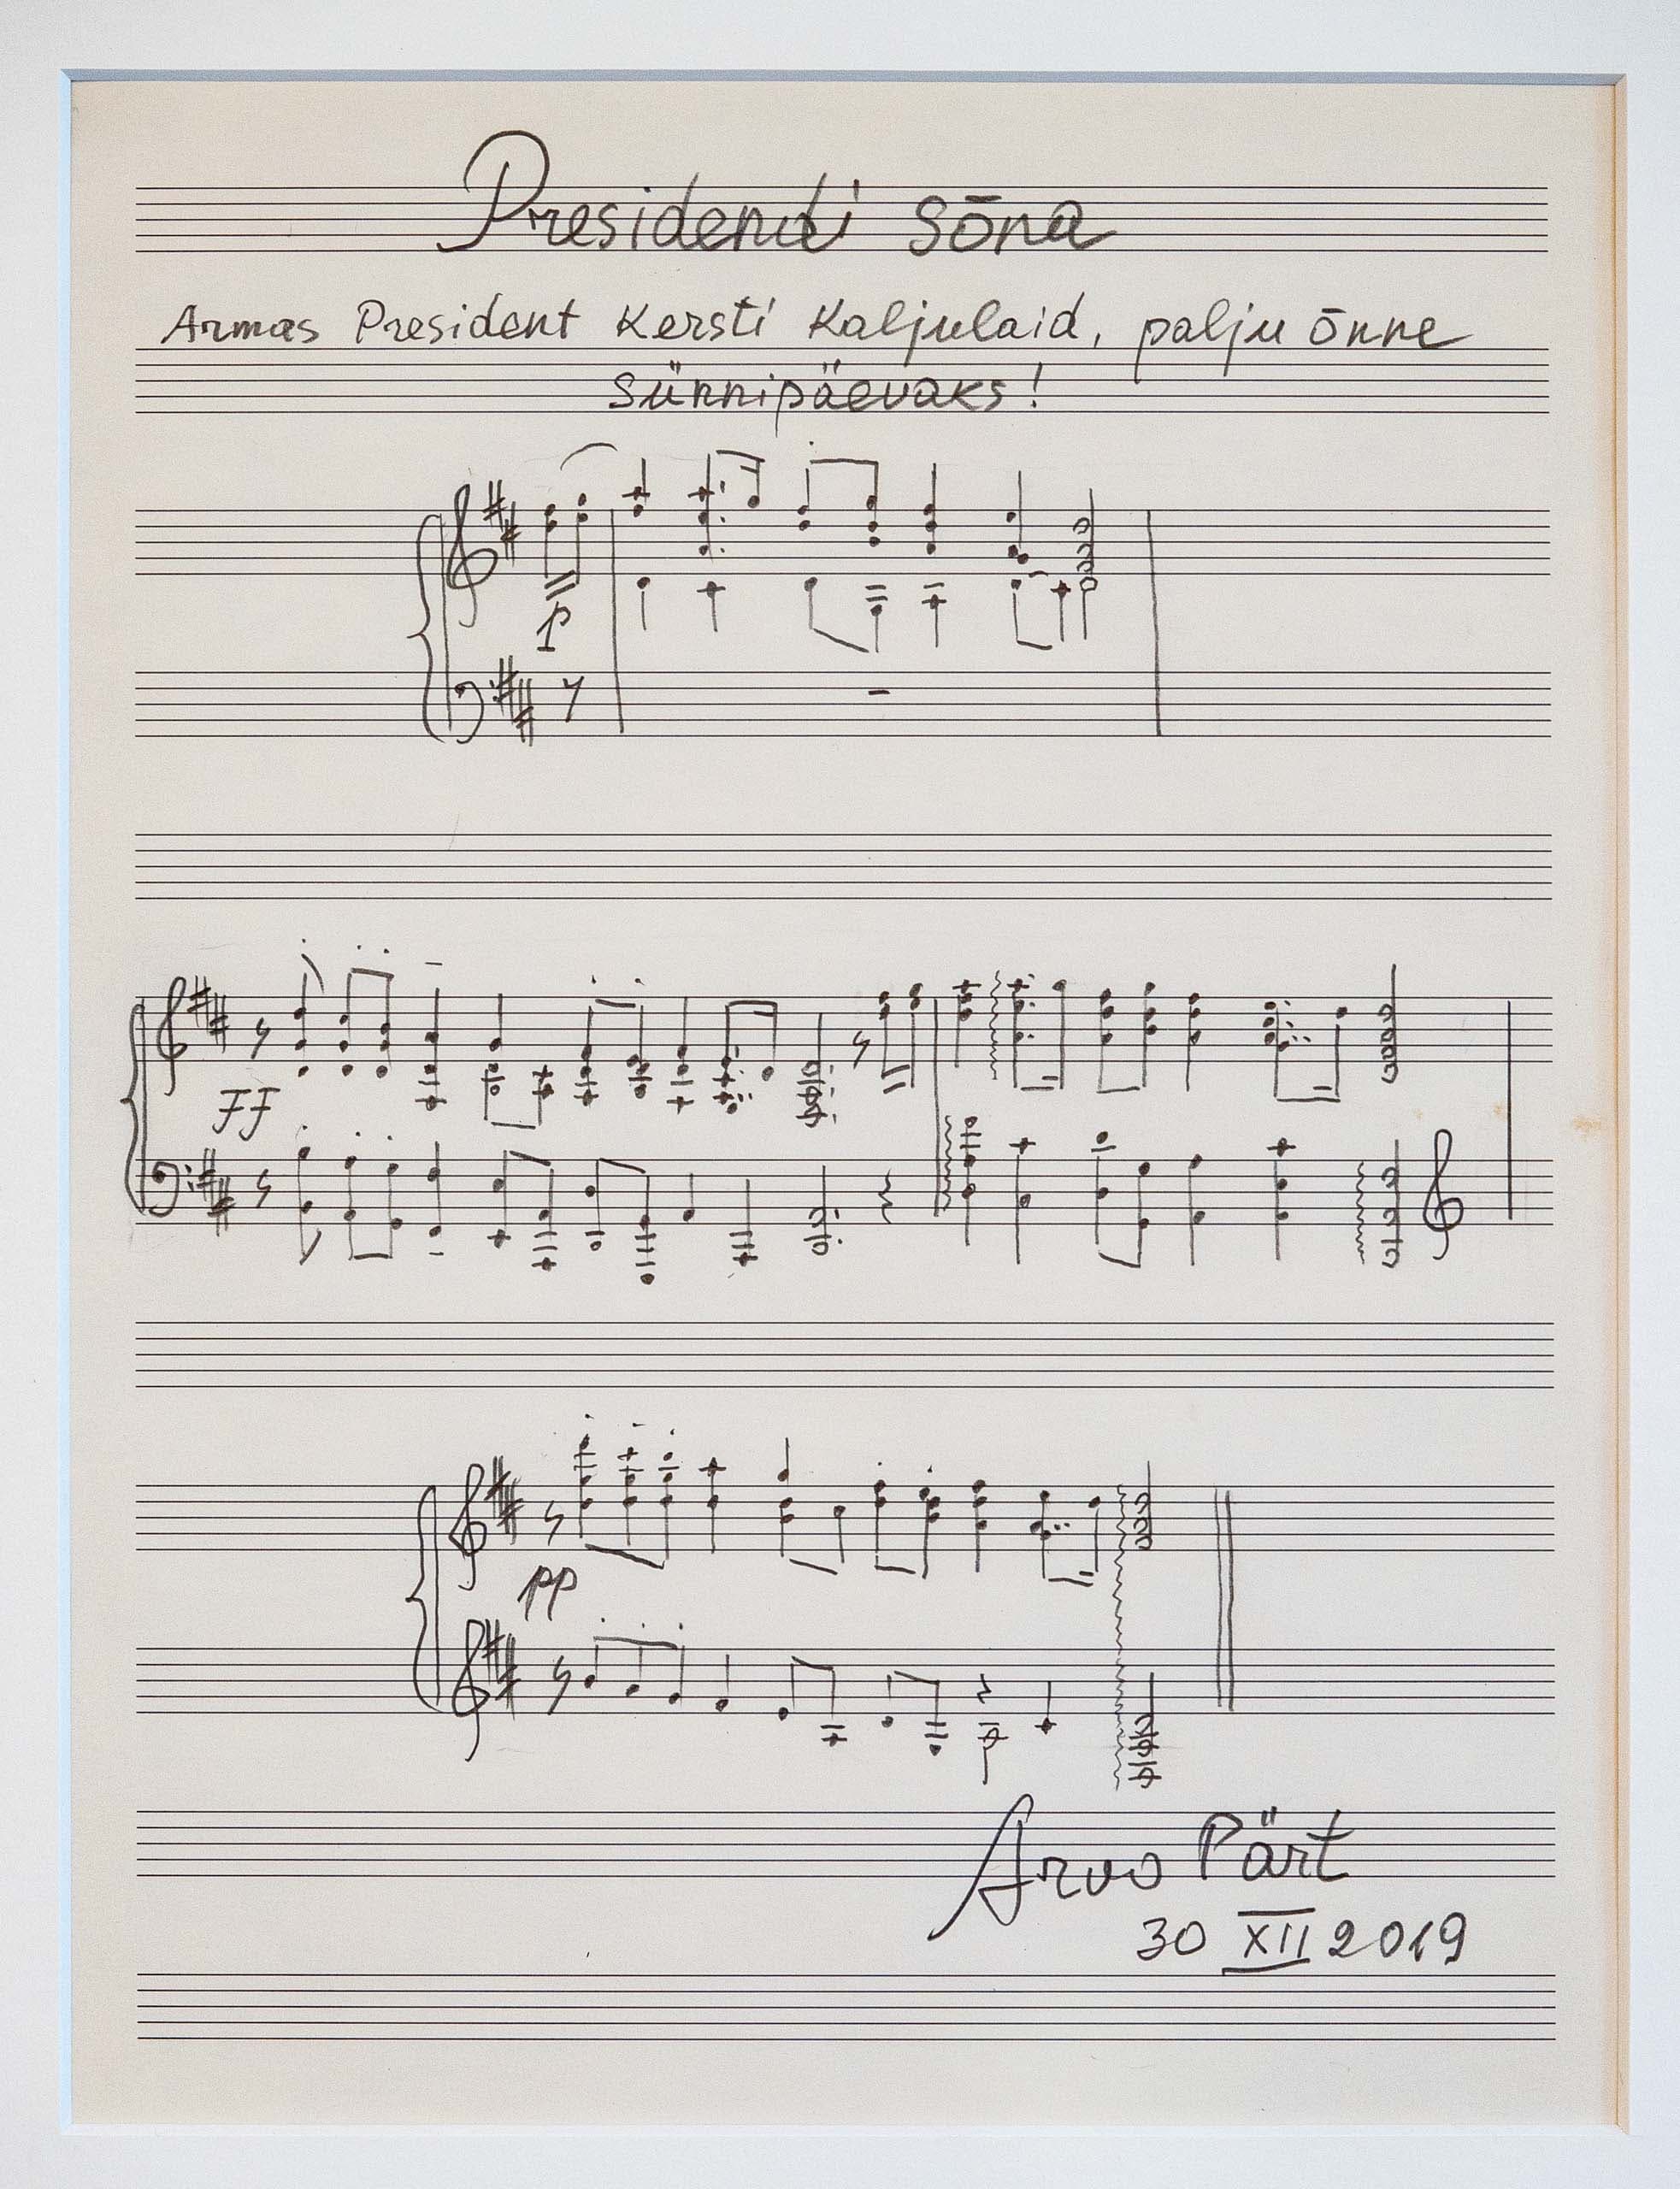 Presidendi sõna
Armas President Kersti Kaljulaid, palju õnne
sünnipäevaks!
p
FF
pp
Arvo Pärt
30 XII 2019